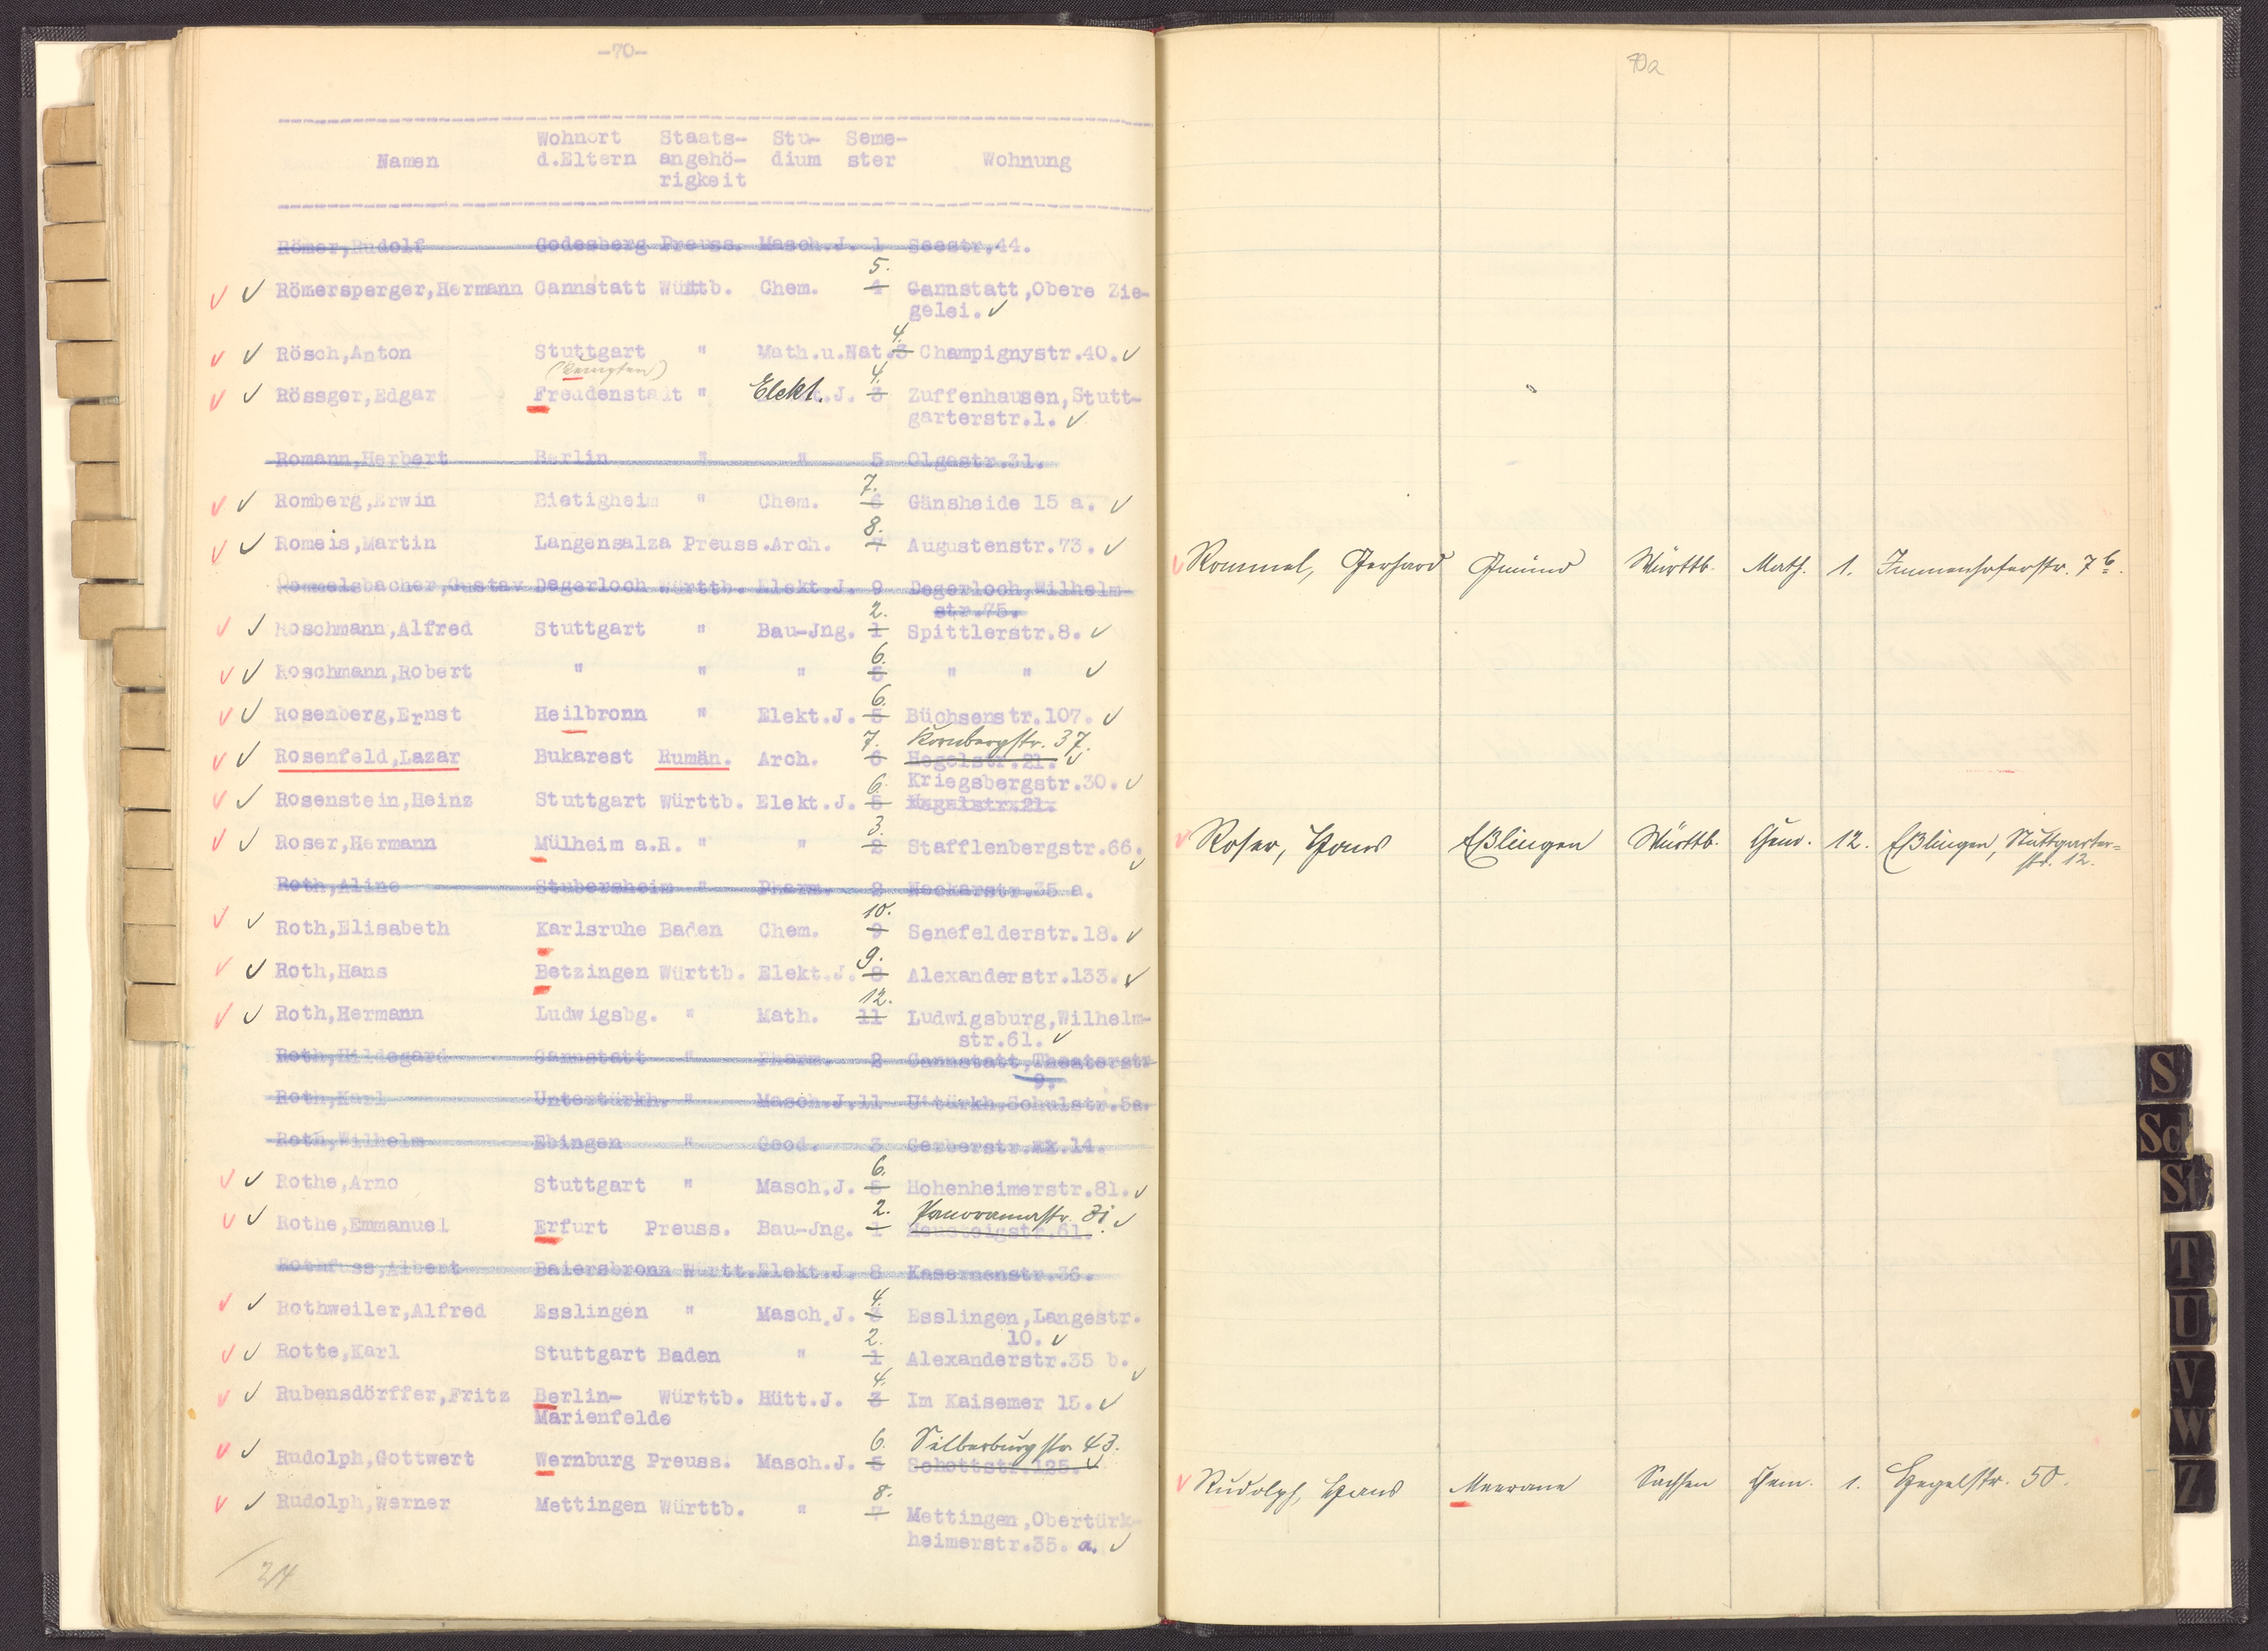 -70-
Namen Wohnort d.Eltern Staats-angehö-rigkeit Stu-dium Seme-ster Wohnung
Römer,Rudolf Godesberg Preuss. Masch.J. 1 Seestr.44.
5.
Römersperger,Hermann Cannstatt Württb. Chem. 4 Cannstatt,Obere Zie-
gelei.
4.
Rösch,Anton Stuttgart " Math.u.Nat. 3 Champignystr.40.
4.
Rössger,Edgar Freudenstadt " Elekt.J. 3 Zuffenhausen,Stutt-
garterstr.1.
Romann,Herbert Berlin " " 5 Olgastr.31.
7.
Romberg,Erwin Bietigheim " Chem. 6 Gänsheide 15 a.
8.
Romeis,Martin Langensalza Preuss. Arch. 7 Augustenstr.73.
Rommelsbacher,Gustav Degerloch Württb. Elekt.J. 9 Degerloch,Wilhelm-
str.75.
2.
Roschmann,Alfred Stuttgart " Bau-Jng. 1 Spittlerstr.8.
6.
Roschmann,Robert " " " 5 " "
6.
Rosenberg,Ernst Heilbronn " Elekt.J. 5 Büchsenstr.107.
7. Kornbergstr. 37.
Rosenfeld,Lazar Bukarest Rumän. Arch. 6 Hegelstr.21.
6. Kriegsbergstr.30.
Rosenstein,Heinz Stuttgart Württb. Elekt.J. 5 Hegelstrx21x
3.
Roser,Hermann Mülheim a.R. " " 2 Stafflenbergstr.66.
Roth,Aline Stubersheim " Pharm. 2 Neckarstr.35 a.
10.
Roth,Elisabeth Karlsruhe Baden Chem. 9 Senefelderstr.18.
9.
Roth,Hans Betzingen Württb. Elekt.J. 8 Alexanderstr.133.
12.
Roth,Hermann Ludwigsbg. " Math. 11 Ludwigsburg,Wilhelm-
str.61.
Roth,Hildegard Cannstatt " Pharm. 2 Cannstatt,Theaterstr
9.
Roth,Karl Untertürkh. " Masch.J. 11 Utürkh,Schulstr.5a.
Roth,Wilhelm Ebingen " Geod. 3 Gerberstr.xx.14.
6.
Rothe,Arno Stuttgart " Masch.J. 5 Hohenheimerstr.81.
2. Panoramastr. 31.
Rothe,Emmanuel Erfurt Preuss. Bau-Jng. 1 Neusteigstr.61.
Rothfuss,Albert Baiersbronn Württ. Elekt.J. 8 Kasernenstr.36.
4.
Rothweiler,Alfred Esslingen " Masch.J. 3 Esslingen,Langestr.
10.
2.
Rotte,Karl Stuttgart Baden " 1 Alexanderstr.35 b.
4.
Rubensdörffer,Fritz Berlin- Württb. Hütt.J. 3 Im Kaisemer 15.
Marienfelde
6. Silberburgstr. 43.
Rudolph,Gottwert Wernburg Preuss. Masch.J. 5 Schottstr.125.
8.
Rudolph,Werner Mettingen Württb. " 7 Mettingen,Obertürk-
heimerstr.35. a.
24
70a
Rommel, Gerhard Gmünd Württb. Math. 1. Immenhoferstr. 7 b.
Roser, Hans Eßlingen Württb. Chem. 12. Eßlingen, Stuttgarter-
str. 12.
Rudolph, Hans Meerane Sachsen Chem. 1. Hegelstr. 50.
S
Sc
St
T
U
V
W
Z